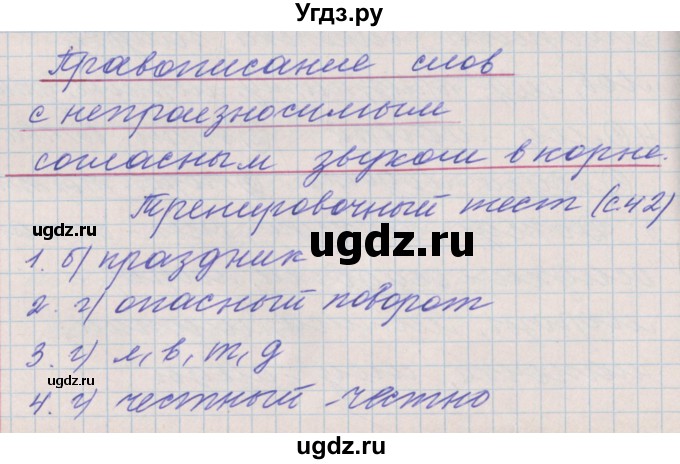 Угдз.ру
Правописание слов
с непроизносимым
согласным звуком в корне.
Тренировочный тест (с.42)
ugdz.ru
ugdz.ru
ugdz.ru
1. б) праздник
2. г) опасный поворот
3. г) л, в, т, д
ugdz.ru
ugdz.ru
4. г) честный - честно
ugdz.ru